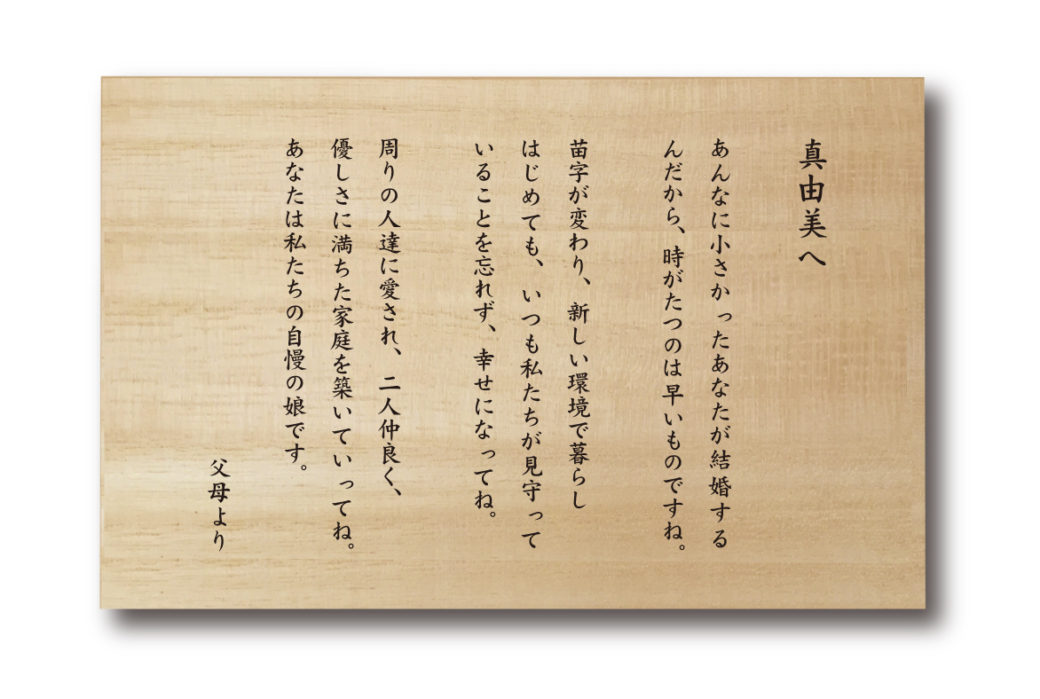 真由美へ
あんなに小さかったあなたが結婚する
んだから、時がたつのは早いものですね。
苗字が変わり、新しい環境で暮らし
はじめても、いつも私たちが見守って
いることを忘れず、幸せになってね。
周りの人達に愛され、二人仲良く、
優しさに満ちた家庭を築いていってね。
あなたは私たちの自慢の娘です。
父母より